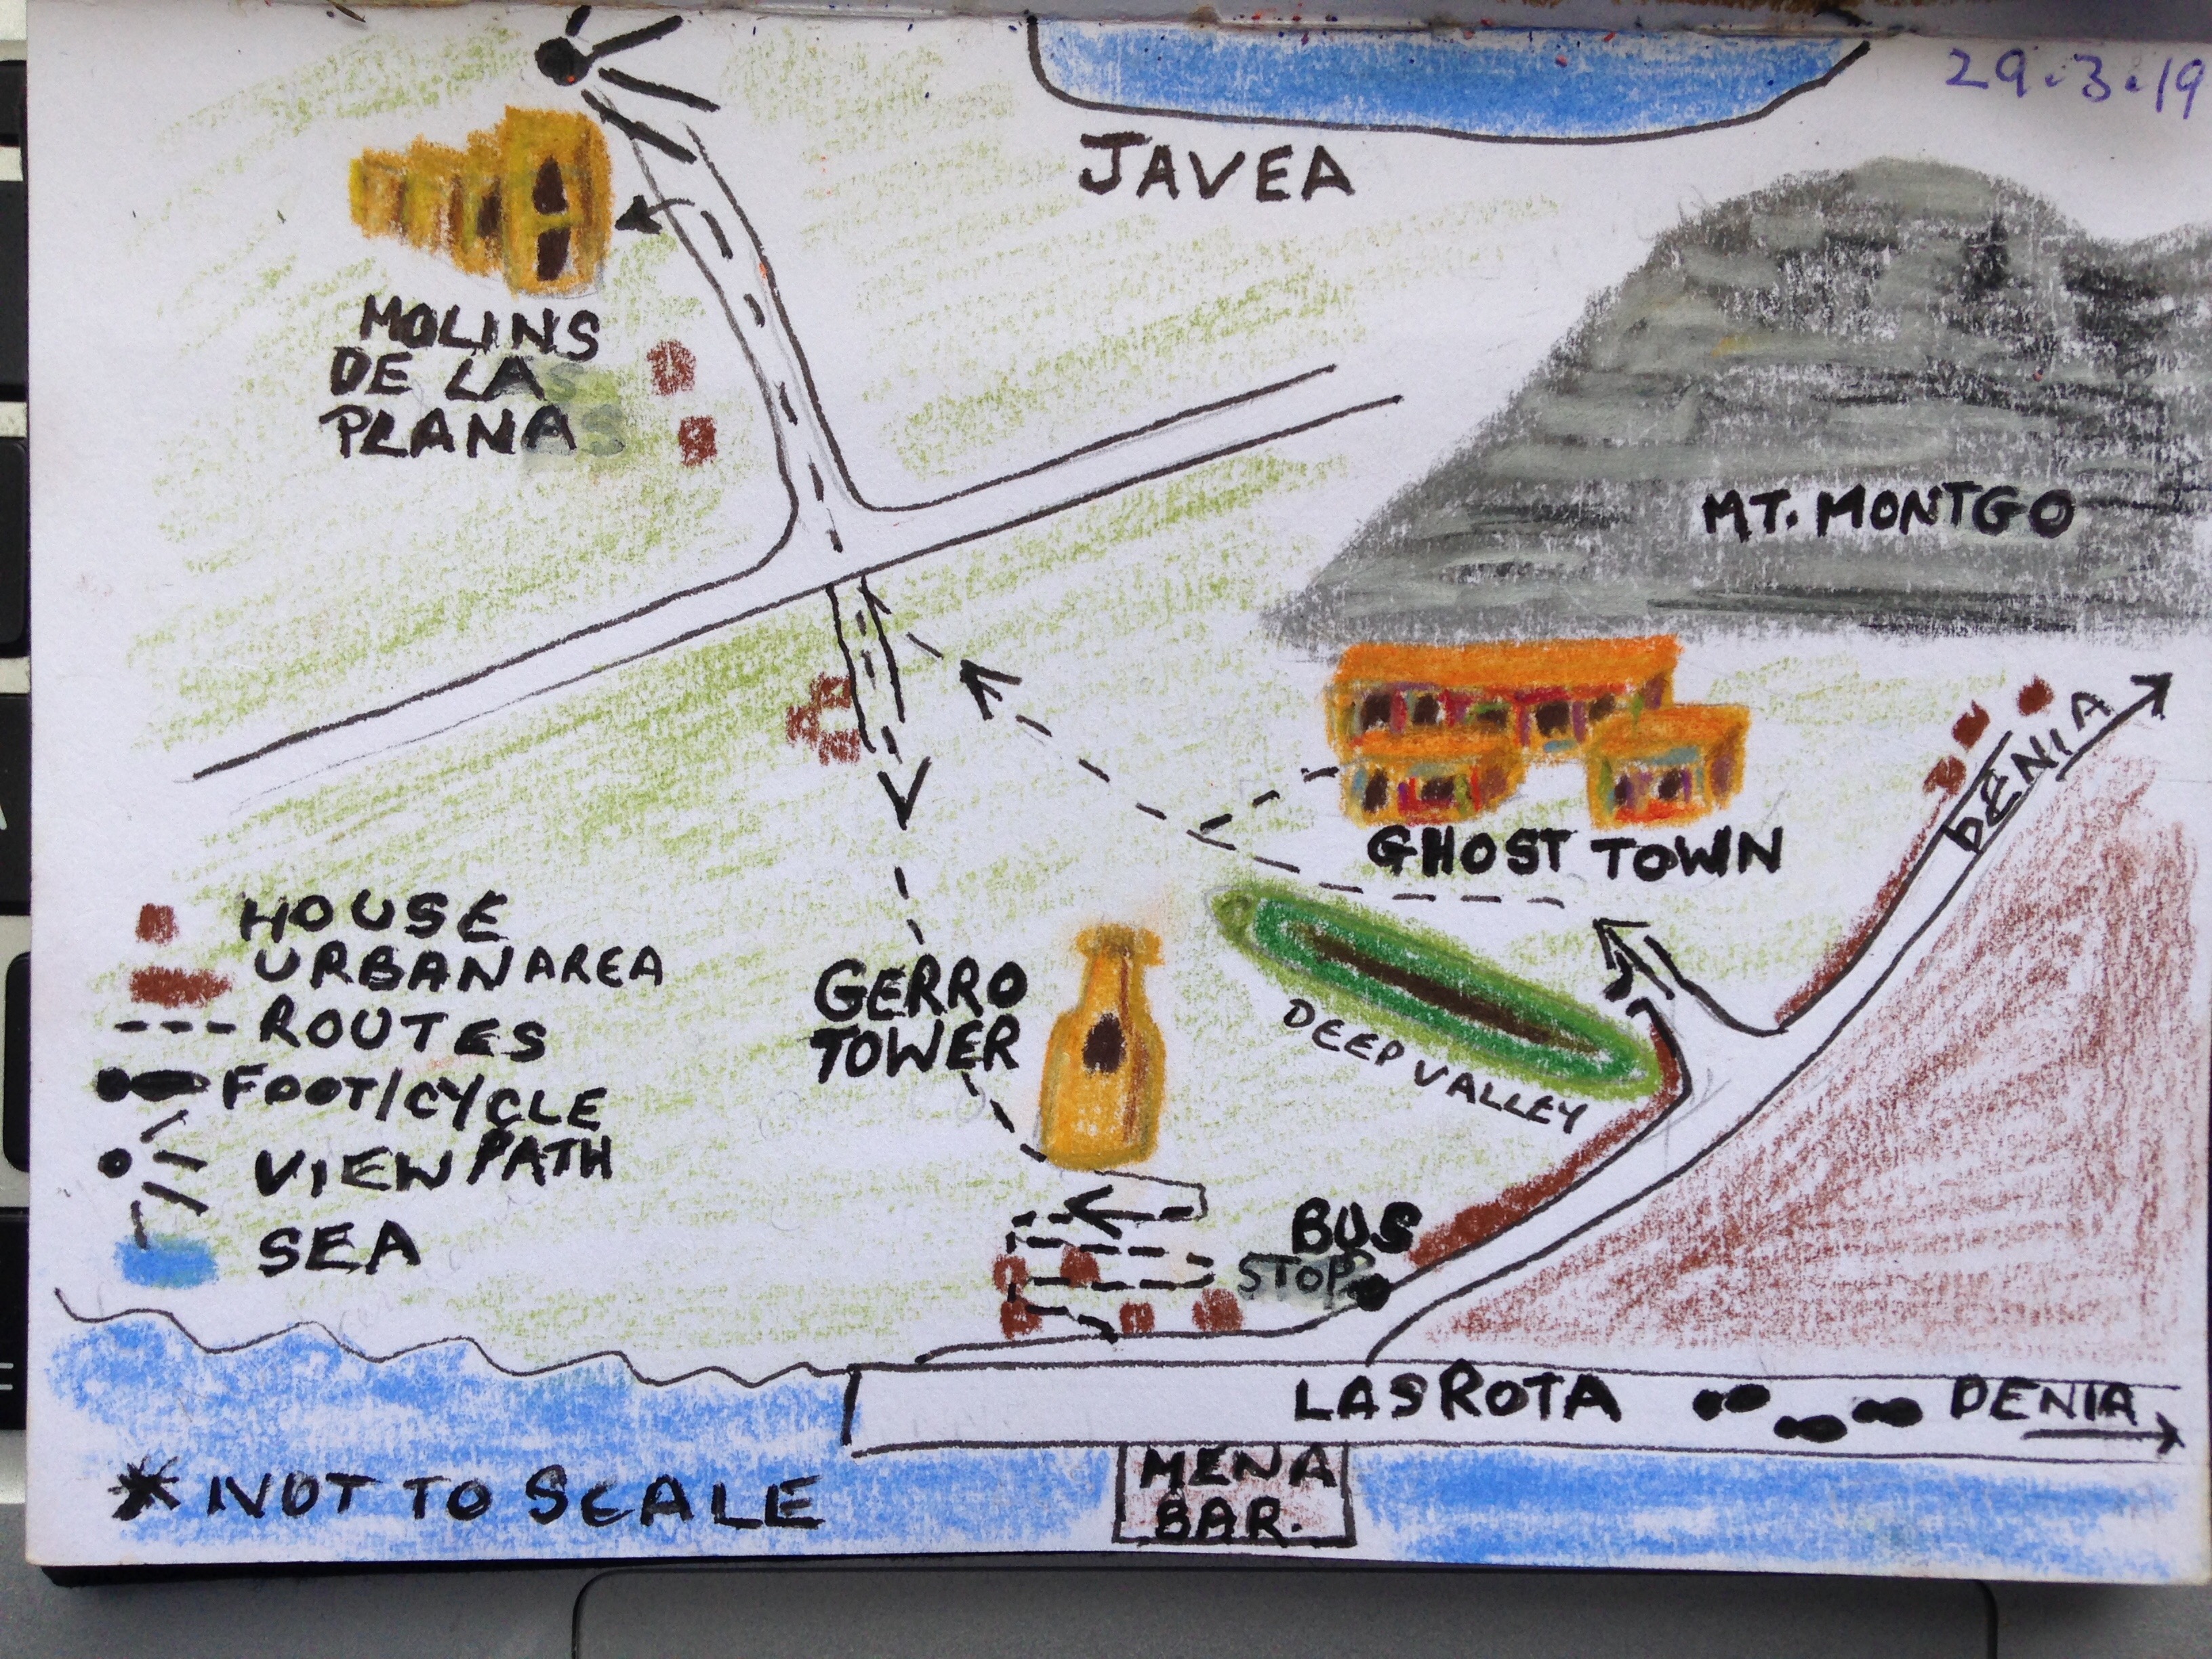 29.3.19
JAVEA
MOLINS
DE LA
PLANA
MT. MONTGO
GHOST TOWN
DENIA
HOUSE
URBAN AREA
ROUTES
FOOT/CYCLE
PATH
VIEW
SEA
GERRO
TOWER
DEEP VALLEY
BUS
STOP
LAS ROTA
DENIA
MENA
BAR.
* NOT TO SCALE